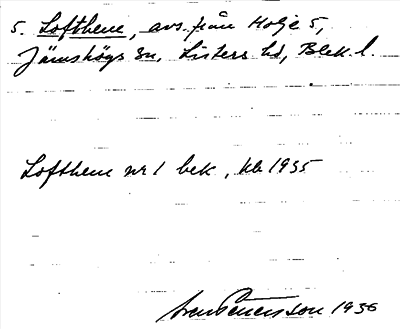 5. Lofthem, avs. från Holje 5,
Jämshögs sn, Listers hd, Blek. l.
Lofthem nr 1 bek, kb 1935
1936